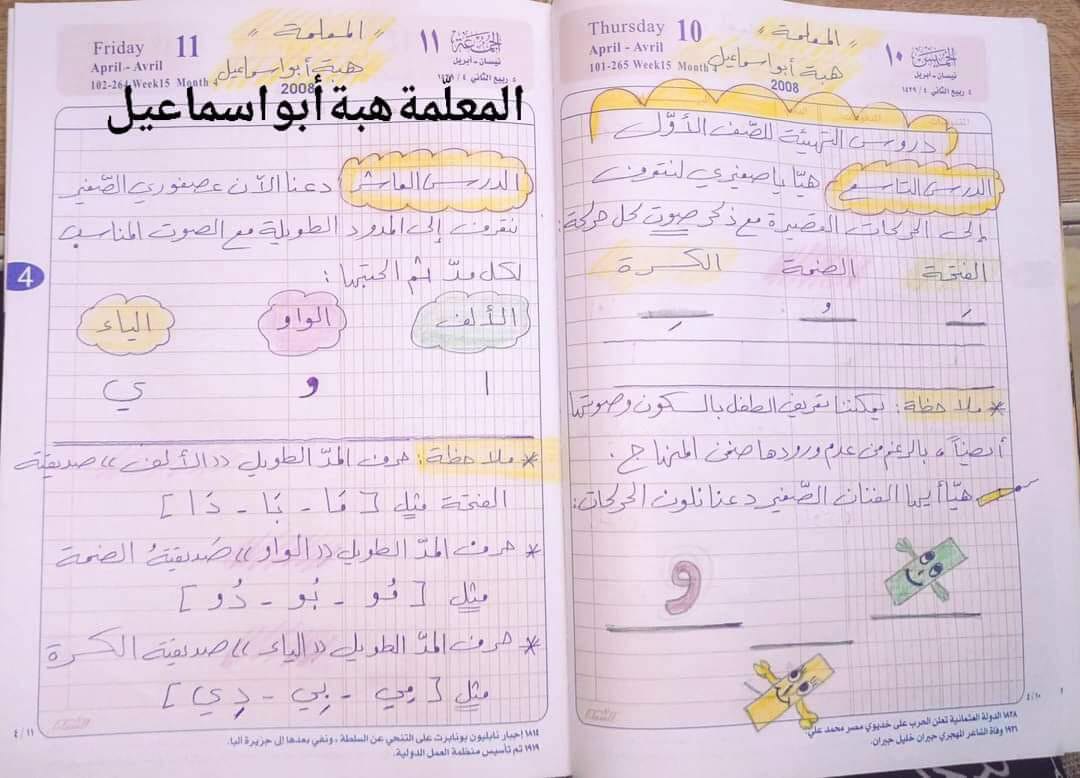 Thursday 10
April - Avril
101-265 Week15 Month 4
2008
« المعلمة »
هبة أبو اسماعيل
١٠ الخميس
نيسان - ابريل
٤ ربيع الثاني ٤ / ١٤٢٩
دروس التهيئة للصّف الأوّل
الدرس التاسع هيّا يا صغيري لنتعرف
إلى الحركات القصيرة مع ذكر صوت كل حركة:
الفتحة الضمة الكسرة
َ ُ ِ
* ملاحظة: يمكننا تعريف الطفل بالسكون وصوتها
أيضاً، بالرغم من عدم ورودها ضمن المنهاج.
هيّا أيها الفنان الصّغير دعنا نلون الحركات:
و
٤/١٠
١٨٢٨ الدولة العثمانية تعلن الحرب على خديوي مصر محمد علي.
١٩٣١ وفاة الشاعر المهجري جبران خليل جبران.
Friday 11
April - Avril
102-264 Week15 Month 4
2008
« المعلمة »
هبة أبو اسماعيل
١١ الجمعة
نيسان - ابريل
٥ ربيع الثاني ٤ / ١٤٢٩
المعلّمة هبة أبو اسماعيل
4
الدرس العاشر دعنا الآن عصفوري الصّغير
نتعرف إلى المدود الطويلة مع الصوت المناسب
لكل مدّ ثم اكتبها:
الألف الواو الياء
ا و ي
* ملاحظة: حرف المدّ الطويل «الألف» صديقة
الفتحة مثل [مَا - بَا - دَا]
* حرف المدّ الطويل «الواو» صَديقةُ الضمة
مثل [مُو - بُو - دُو]
* حرف المدّ الطويل «الياء» صديقة الكسرة
مثل [مِي - بِي - دِي]
٤/١١
١٨١٤ إجبار نابليون بونابرت على التنحي عن السلطة، ونفي بعدها إلى جزيرة ألبا.
١٩١٩ تم تأسيس منظمة العمل الدولية.